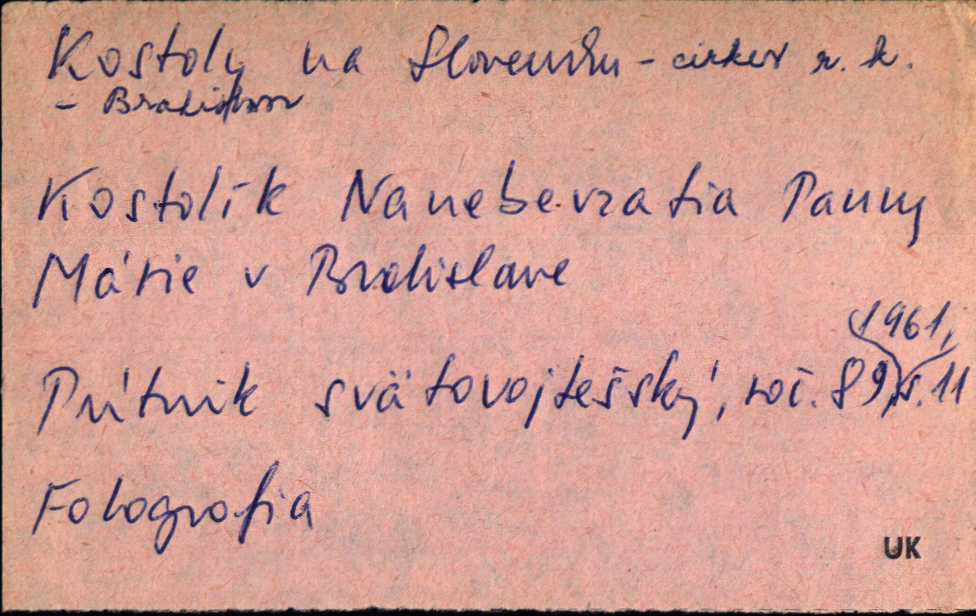 Kostoly na Slovensku - cirkev r. k.
- Bratislava
Kostolík Nanebevzatia Panny
Márie v Bratislave
1961,
Pútnik svätovojtešský, roč. 89, s. 11
Fotografia
UK